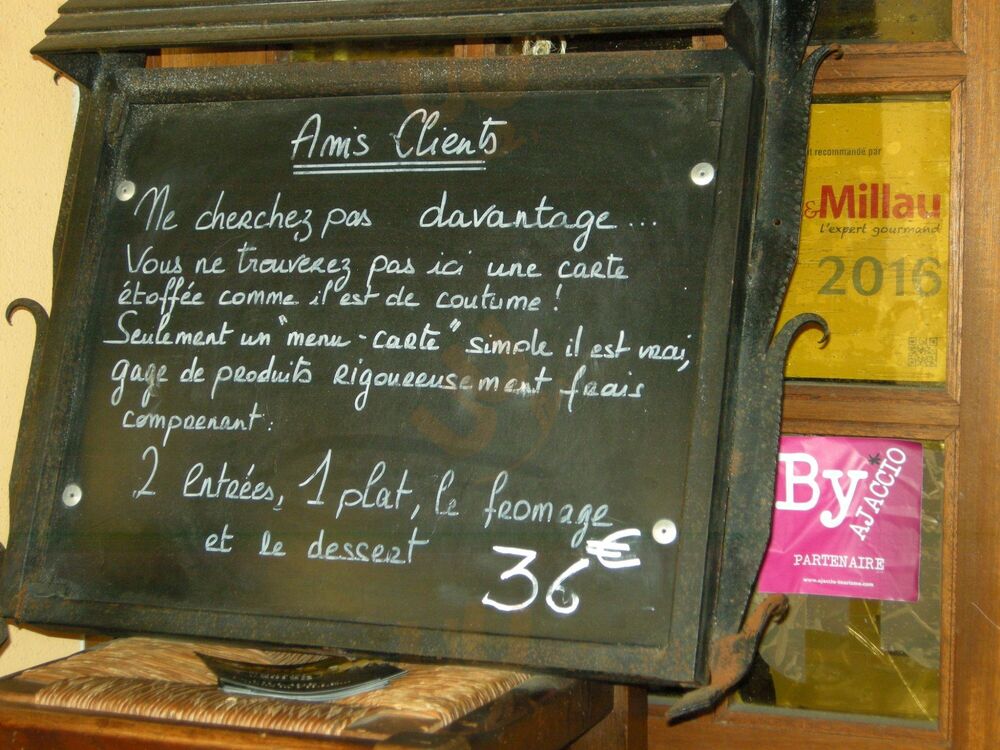 Amis Clients
Ne cherchez pas davantage...
Vous ne trouverez pas ici une carte
étoffée comme il est de coutume !
Seulement un "menu-carte" simple il est vrai,
gage de produits rigoureusement frais
comprenant :
2 entrées, 1 plat, le fromage
et le dessert
36 €
recommandé par
&Millau
l'expert gourmand
2016
By*
AJACCIO
PARTENAIRE
www.ajaccio-tourisme.com